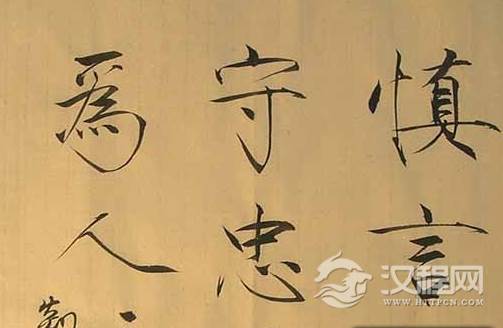 慎言
守忠
為人
汉程网
HTTPCN.COM